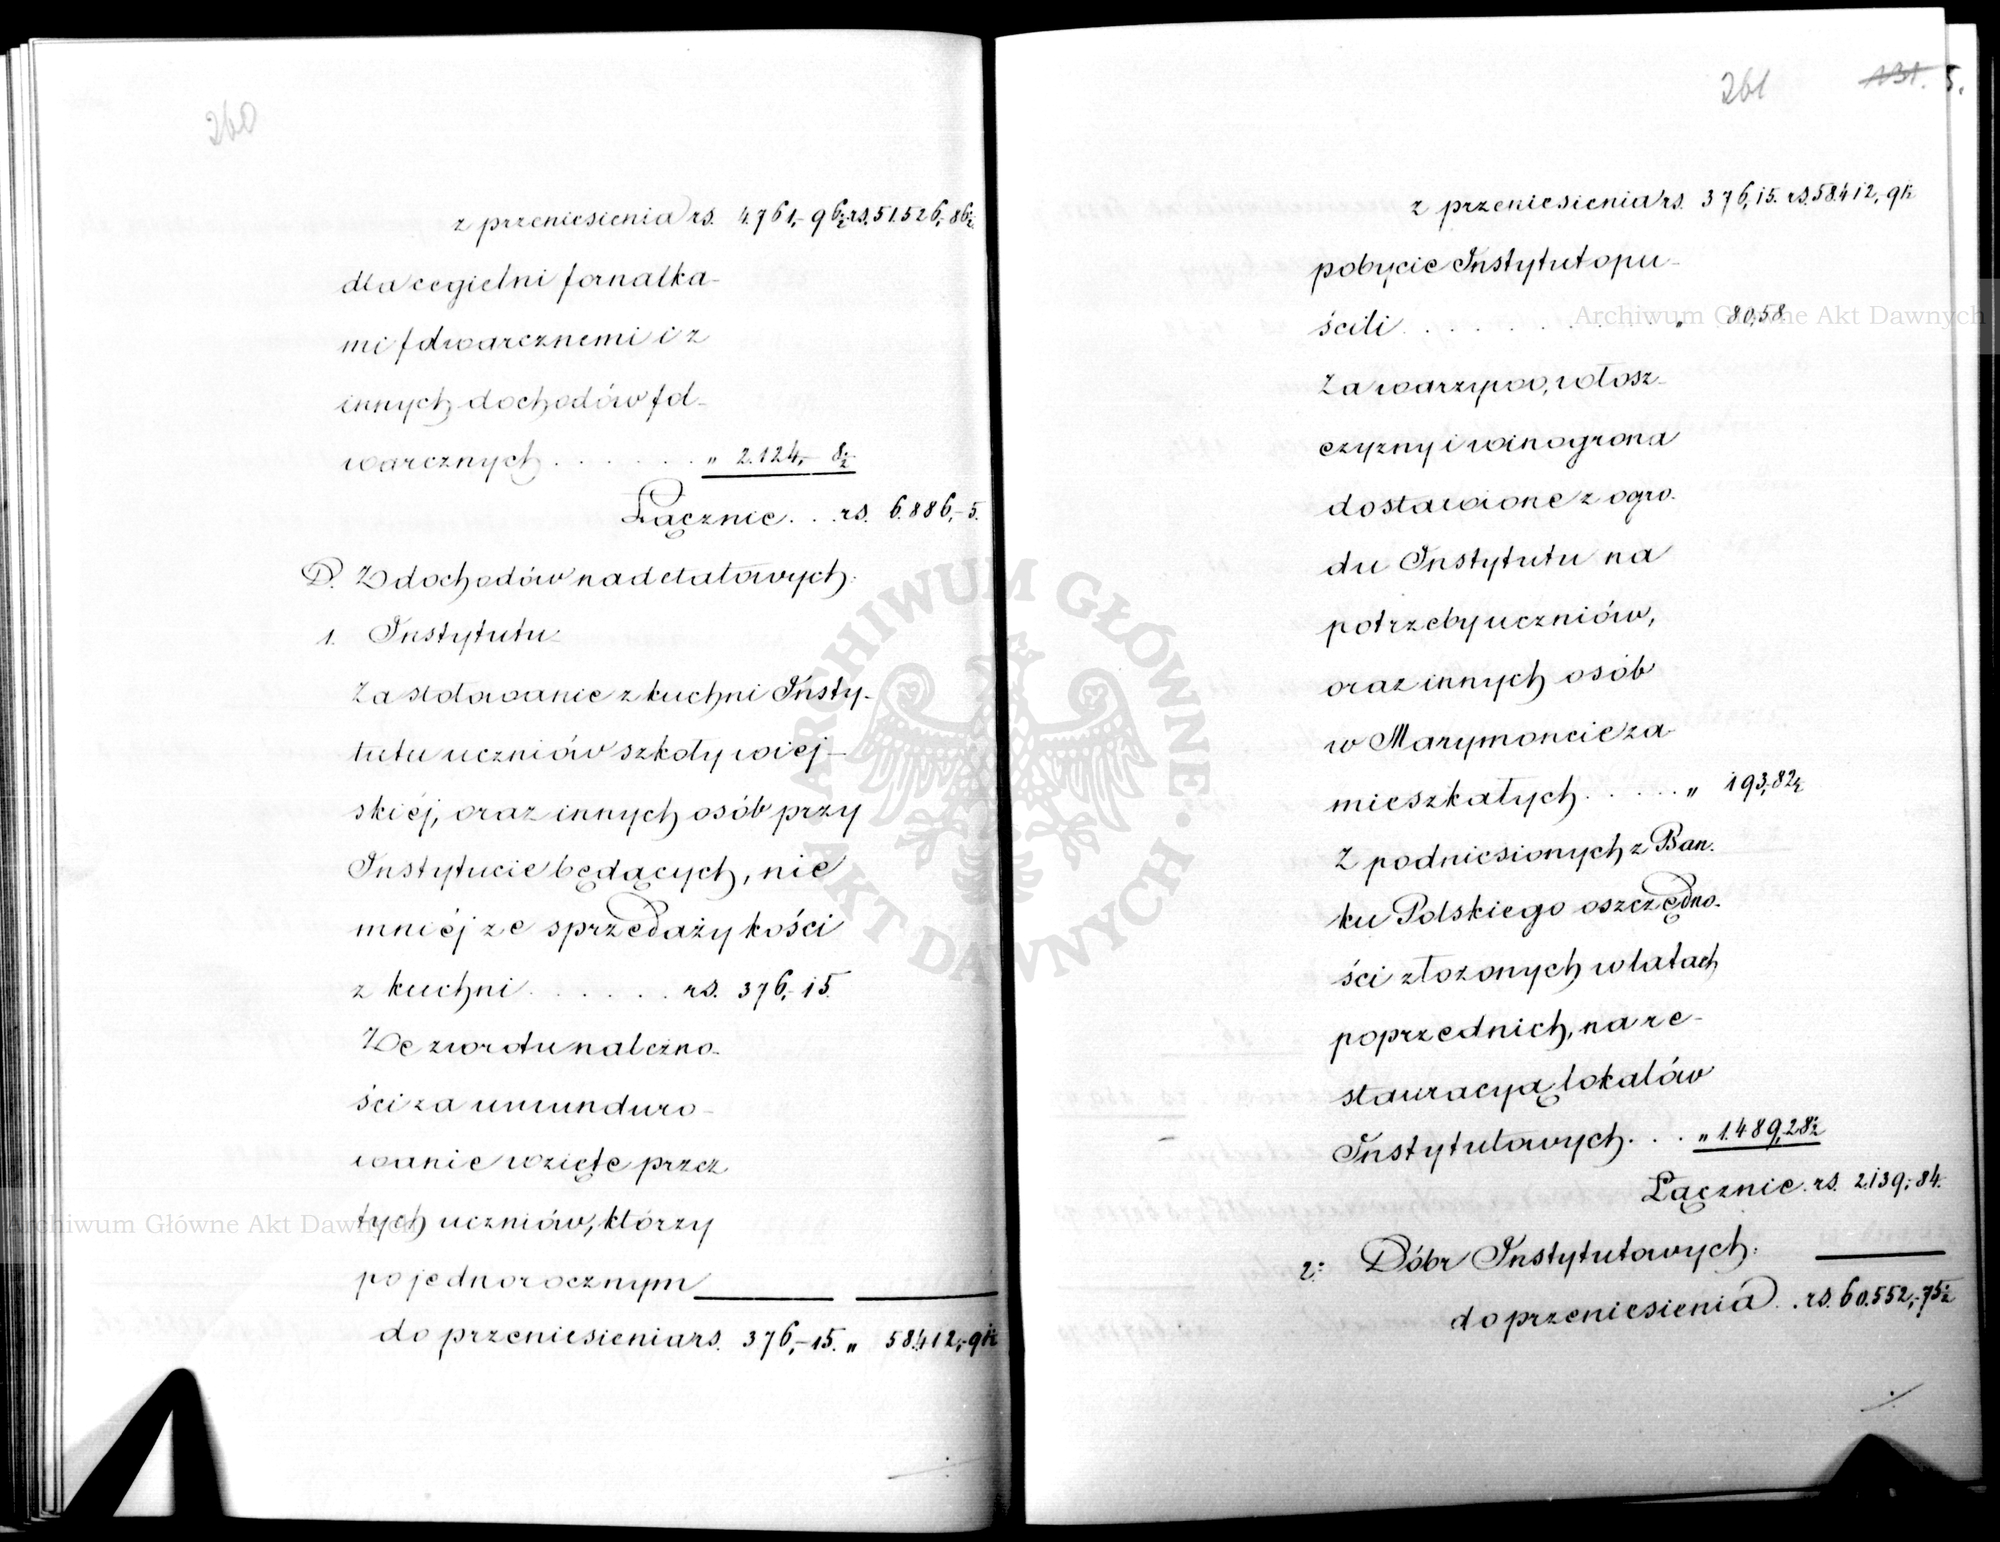 260
z przeniesienia rs. 4761,-96½ rs. 51.526,-86½
dla cegielni fornalka-
mi folwarcznemi i z
innych dochodów fol-
warcznych . . . . . . . „ 2.124,- 8½
Łącznie . . . rs. 6.886,-5.
D. Z dochodów nadetatowych:
1. Instytutu
Za stołowanie z kuchni Insty-
tutu uczniów szkoły wiej-
skiéj, oraz innych osób przy
Instytucie będących, nie
mniéj ze sprzedaży kości
z kuchni . . . . . . rs. 376,-15.
Ze zwrotu należno-
ści za umunduro-
wanie wzięte przez
tych uczniów, którzy
po jednorocznym
do przeniesienia rs. 376,-15. „ 58.412,-91½
261 131. 5.
z przeniesienia rs. 376,15. rs. 58.412,-91½
pobycie Instytut opu-
ścili . . . . . . . . . . . „ 80,58
Za warzywo, włosz-
czyzny i winogrona
dostawione z ogro-
du Instytutu na
potrzeby uczniów,
oraz innych osób
w Marymoncie za-
mieszkałych . . . . . „ 193,82½
Z podniesionych z Ban-
ku Polskiego oszczędno-
ści złożonych w latach
poprzednich, na re-
stauracyą lokalów
Instytutowych . . . „ 1.489,28½
Łącznie . rs. 2.139,-84.
2: Dóbr Instytutowych:
do przeniesienia . . rs. 60.552,-75½
Archiwum Główne Akt Dawnych
Archiwum Główne Akt Dawnych
ARCHIWUM GŁÓWNE AKT DAWNYCH